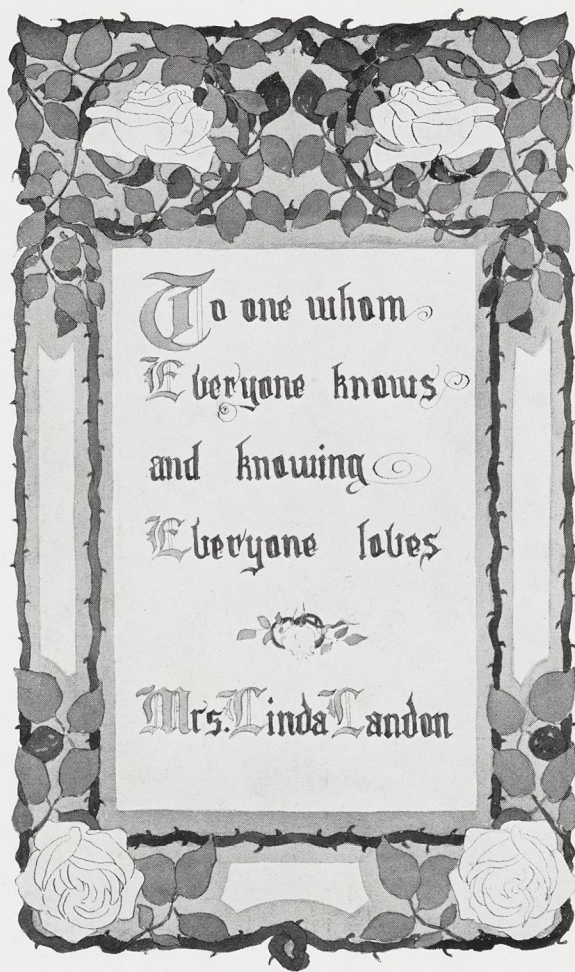 To one whom
Everyone knows
and knowing
Everyone loves
Mrs. Linda Landon